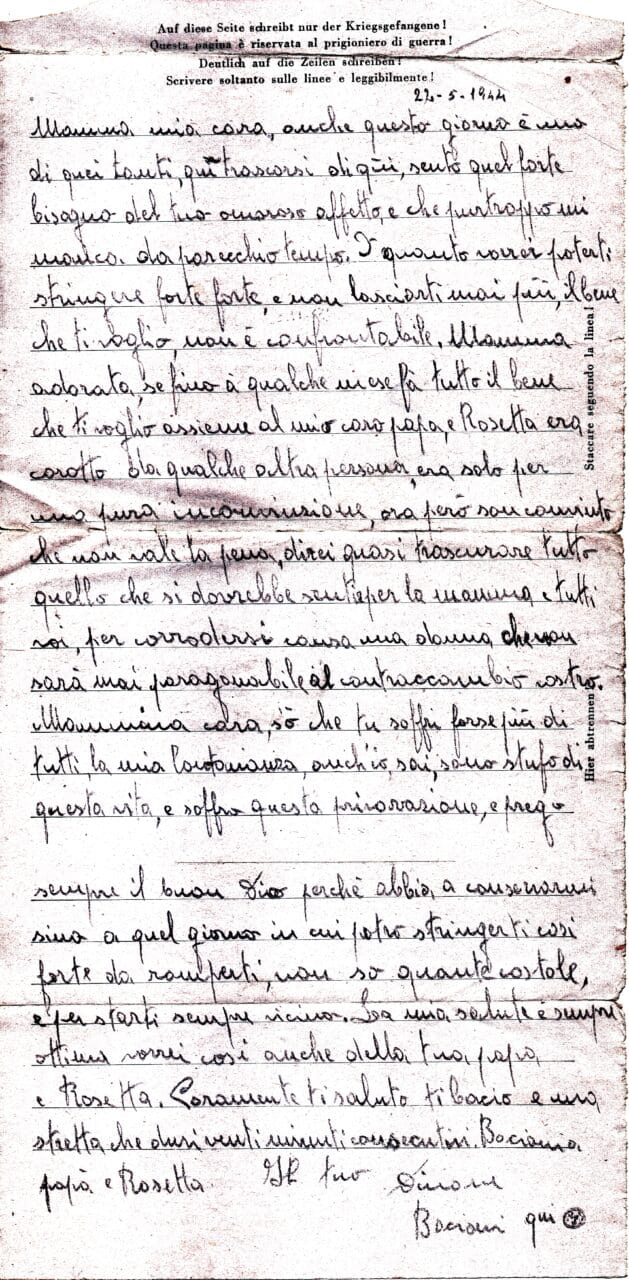 Auf diese Seite schreibt nur der Kriegsgefangene!
Questa pagina è riservata al prigioniero di guerra!
Deutlich auf die Zeilen schreiben!
Scrivere soltanto sulle linee e leggibilmente!
22-5-1944
Mamma mia cara, anche questo giorno è uno
di quei tanti, quì trascorsi di quì, sento quel forte
bisogno del tuo amoroso affetto, e che purtroppo mi
manca da parecchio tempo. quanto vorrei poterti
stringere forte forte, e non lasciarti mai più, il bene
che ti voglio, non è confrontabile. Mamma
adorata, se fino à qualche mese fà tutto il bene
che ti voglio assieme al mio caro papa, e Rosetta era
corotto da qualche altra persona, era solo per
una pura, ora però son convinto
che non vale la pena, direi quasi trascurare tutto
quello che si dovrebbe sentire per la mamma e tutti
voi, per corrodersi causa una donna, che non
sarà mai paragonabile al contraccambio vostro.
Mammina cara, sò che tu soffri forse più di
tutti, la mia lontananza, anch'io, sai, sono stufo di
questa vita, e soffro questa, e prego
sempre il buon Dio perchè abbia a conservarmi
sino a quel giorno in cui potro stringerti cosi
forte da romperti, non so quante costole,
e per starti sempre vicino. La mia salute è sempre
ottima vorrei cosi anche della tua, papa
e Rosetta. Caramente ti saluto ti bacio e una
stretta che duri venti minuti consecutivi. Baciami
papà e Rosetta. Il tuo
Bacioni qui
Staccare seguendo la linea!
Hier abtrennen!